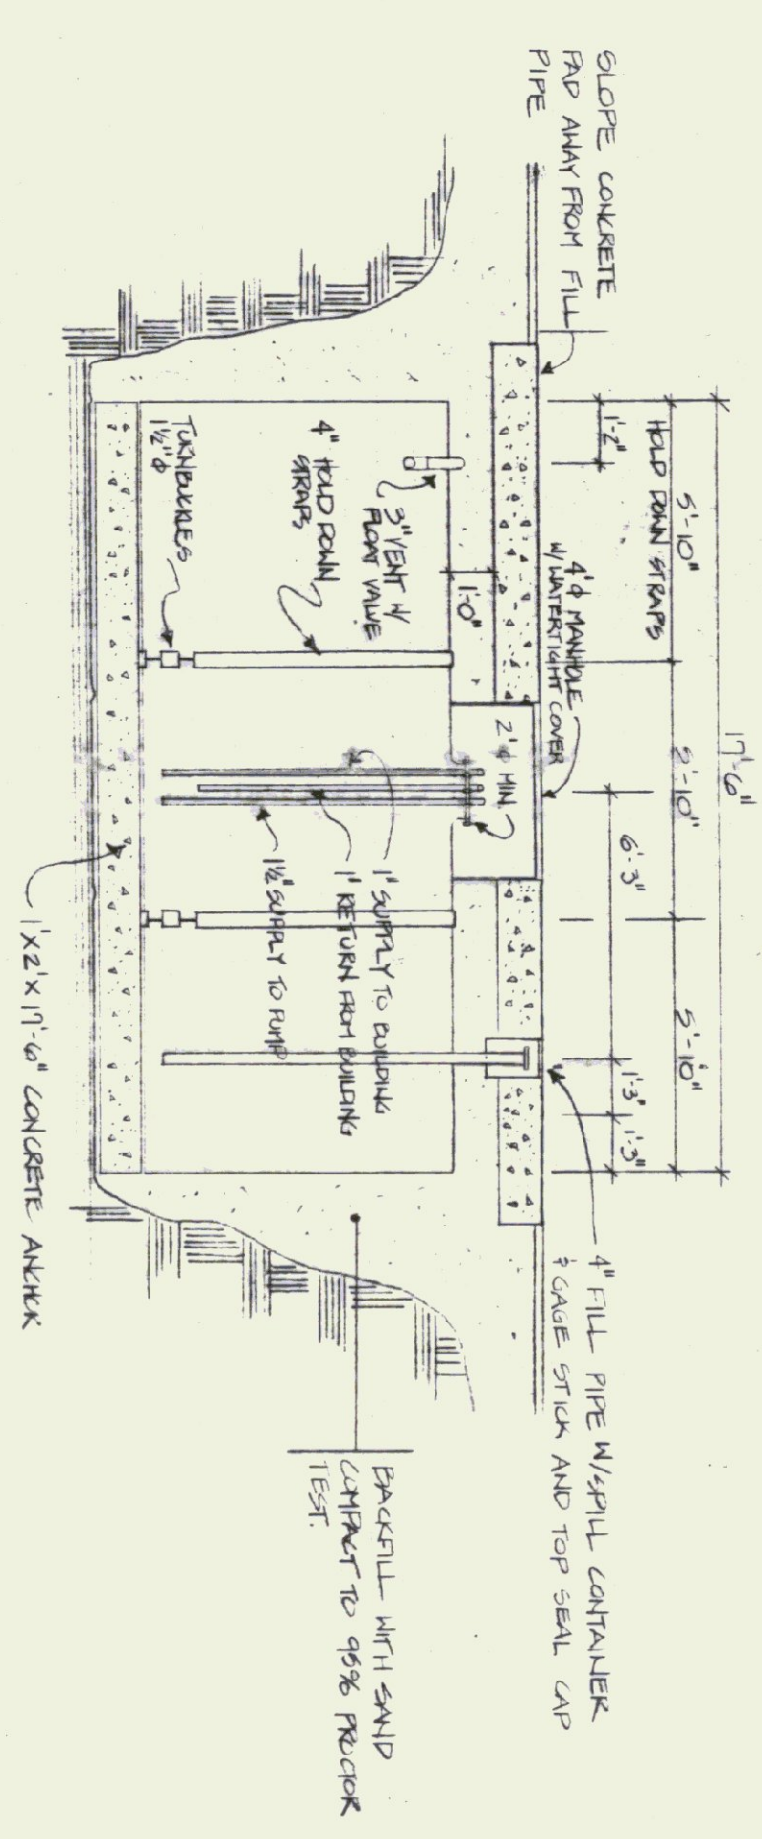 SLOPE CONCRETE
PAD AWAY FROM FILL
PIPE
17'-6"
5'-10"
5'-10"
5'-10"
HOLD DOWN STRAPS
1'-2"
6'-3"
1'-3"
1'-3"
4'φ MANHOLE
W/ WATERTIGHT COVER
2'φ MIN.
1'-0"
3" VENT W/
FLOAT VALVE
4" HOLD DOWN
STRAPS
TURNBUCKLES
1½"φ
1" SUPPLY TO BUILDING
1" RETURN FROM BUILDING
1½" SUPPLY TO PUMP
4" FILL PIPE W/SPILL CONTAINER
& GAGE STICK AND TOP SEAL CAP
BACKFILL WITH SAND
COMPACT TO 95% PROCTOR
TEST.
1'x2'x17'-6" CONCRETE ANCHOR